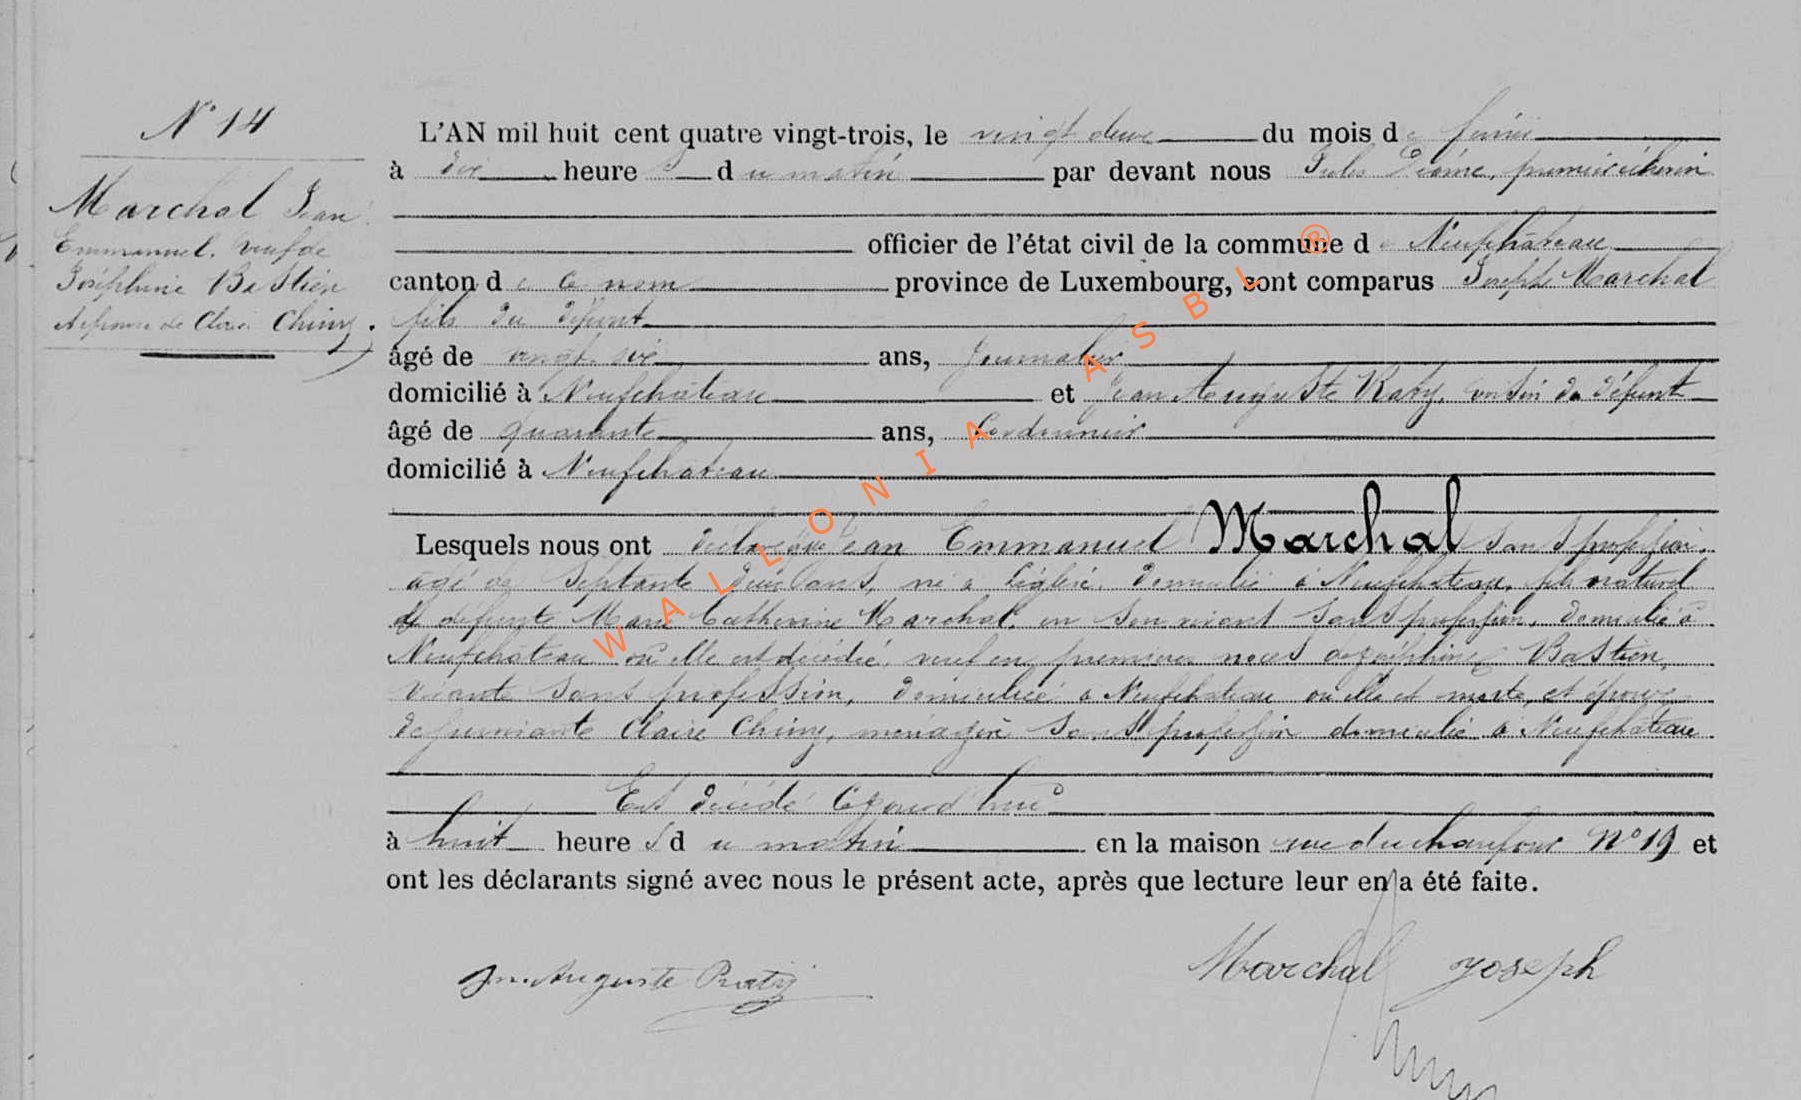 N° 14
Marchal Jean
Emmanuel, veuf de
Joséphine Bastien
et époux de Claire Chiny.
L'AN mil huit cent quatre vingt-trois, le vingt deux du mois de février
à dix heures du matin par devant nous Jules premier échevin
officier de l'état civil de la commune de Neufchâteau
canton de ce nom province de Luxembourg, sont comparus Joseph Marchal
fils du défunt
âgé de vingt six ans, Journalier
domicilié à Neufchâteau et Jean Auguste Raty, voisin du défunt
âgé de quarante ans, Cordonnier
domicilié à Neufchâteau
Lesquels nous ont déclaré que Jean Emmanuel Marchal sans profession,
âgé de septante deux ans, né à Léglise, domicilié à Neufchâteau, fils naturel
de défunte Marie Catherine Marchal, en son vivant sans profession, domiciliée à
Neufchâteau où elle est décédée, veuf en premières noces de Joséphine Bastien,
vivante sans profession, domiciliée à Neufchâteau où elle est morte, et époux
de survivante Claire Chiny, ménagère sans profession domiciliée à Neufchâteau
Est décédé aujourd'hui
à huit heures du matin en la maison rue du chaufour N° 19 et
ont les déclarants signé avec nous le présent acte, après que lecture leur en a été faite.
Jean Auguste Raty
Marchal Joseph
WALLONIA ASBL ®